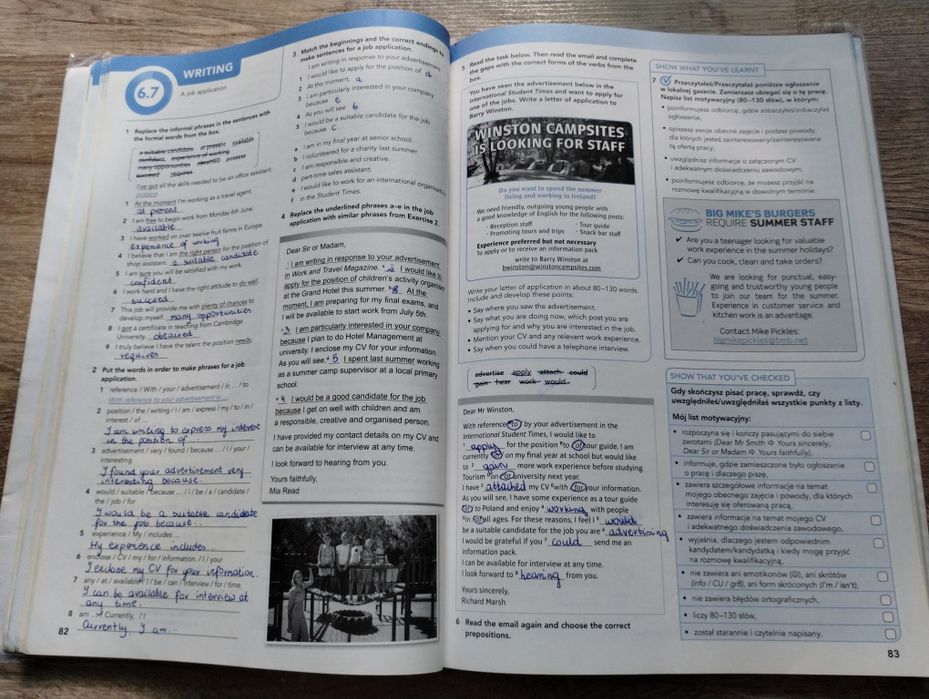 6.7
WRITING
A job application
1 Replace the informal phrases in the sentences with
the formal words from the box.
a suitable candidate at present available
confident experience of working
many opportunities obtained possess
succeed requires
I've got all the skills needed to be an office assistant.
possess
1 At the moment I'm working as a travel agent.
at present
2 I am free to begin work from Monday 6th June.
available
3 I have worked on over twelve fruit farms in Europe
experience of working
4 I believe that I am the right person for the position of
shop assistant. a suitable candidate
5 I am sure you will be satisfied with my work.
confident
6 I work hard and I have the right attitude to do well.
succeed
7 This job will provide me with plenty of chances to
develop myself. many opportunities
8 I got a certificate in teaching from Cambridge
University. obtained
9 I truly believe I have the talent the position needs.
requires
2 Put the words in order to make phrases for a job
application.
1 reference / With / your / advertisement / in ... / to
With reference to your advertisement in ...
2 position / the / writing / I / am / express / my / to / in /
interest / of ...
I am writing to express my interest
in the position of...
3 advertisement / very / found / because ... / I / your /
interesting
I found your advertisement very
interesting because...
4 would / suitable / because ... / I / be / a / candidate /
the / job / for
I would be a suitable candidate
for the job because...
5 experience / My / includes ...
My experience includes...
6 enclose / CV / my / for / information. / I / your
I enclose my CV for your information.
7 any / at / available / I / be / can / interview / for / time.
I can be available for interview at
any time.
8 am ... / Currently, / I
Currently, I am...
82
3 Match the beginnings and the correct endings to
make sentences for a job application.
I am writing in response to your advertisement f
1 I would like to apply for the position of d
2 At the moment, a
3 I am particularly interested in your company
because e
4 As you will see b
5 I would be a suitable candidate for the job
because c
a I am in my final year at senior school.
b I volunteered for a charity last summer.
c I am responsible and creative.
d part-time sales assistant.
e I would like to work for an international organisation
f in the Student Times.
4 Replace the underlined phrases a–e in the job
application with similar phrases from Exercise 2.
Dear Sir or Madam,
1 I am writing in response to your advertisement
in Work and Travel Magazine. 2 I would like to
apply for the position of children's activity organiser
at the Grand Hotel this summer. 8 At the
moment, I am preparing for my final exams, and
I will be available to start work from July 5th.
3 I am particularly interested in your company
because I plan to do Hotel Management at
university. I enclose my CV for your information.
As you will see, 5 I spent last summer working
as a summer camp supervisor at a local primary
school.
4 I would be a good candidate for the job
because I get on well with children and am
a responsible, creative and organised person.
I have provided my contact details on my CV and
can be available for interview at any time.
I look forward to hearing from you.
Yours faithfully,
Mia Read
5 Read the task below. Then read the email and complete
the gaps with the correct forms of the verbs from the
box.
You have seen the advertisement below in the
International Student Times and want to apply for
one of the jobs. Write a letter of application to
Barry Winston.
WINSTON CAMPSITES
IS LOOKING FOR STAFF
Do you want to spend the summer
living and working in Ireland?
We need friendly, outgoing young people with
a good knowledge of English for the following posts:
- Reception staff - Tour guide
- Promoting tours and trips - Snack bar staff
Experience preferred but not necessary
To apply or to receive an information pack
write to Barry Winston at
bwinston@winstoncampsites.com
Write your letter of application in about 80–130 words.
Include and develop these points:
• Say where you saw the advertisement.
• Say what you are doing now, which post you are
applying for and why you are interested in the job.
• Mention your CV and any relevant work experience.
• Say when you could have a telephone interview.
advertise apply attach could
gain hear work would
Dear Mr Winston,
With reference to by your advertisement in the
International Student Times, I would like to
1 apply for the position to of tour guide. I am
currently on my final year at school but would like
to 2 gain more work experience before studying
Tourism university next year.
I have 3 attached my CV with for your information.
As you will see, I have some experience as a tour guide
to Poland and enjoy 4 working with people
in all ages. For these reasons, I feel I 5 would
be a suitable candidate for the job you are 6 advertising
I would be grateful if you 7 could send me an
information pack.
I can be available for interview at any time.
I look forward to 8 hearing from you.
Yours sincerely,
Richard Marsh
6 Read the email again and choose the correct
prepositions.
SHOW WHAT YOU'VE LEARNT
7 Przeczytałeś/Przeczytałaś poniższe ogłoszenie
w lokalnej gazecie. Zamierzasz ubiegać się o tę pracę.
Napisz list motywacyjny (80–130 słów), w którym:
• poinformujesz odbiorcę, gdzie zobaczyłeś/zobaczyłaś
ogłoszenie,
• opiszesz swoje obecne zajęcia i podasz powody,
dla których jesteś zainteresowany/zainteresowana
tą ofertą pracy,
• uwzględnisz informacje o załączonym CV
i adekwatnym doświadczeniu zawodowym,
• poinformujesz odbiorcę, że możesz przyjść na
rozmowę kwalifikacyjną w dowolnym terminie.
BIG MIKE'S BURGERS
REQUIRE SUMMER STAFF
✔ Are you a teenager looking for valuable
work experience in the summer holidays?
✔ Can you cook, clean and take orders?
We are looking for punctual, easy-
going and trustworthy young people
to join our team for the summer.
Experience in customer service and
kitchen work is an advantage.
Contact Mike Pickles:
bigmikepickles@bmb.net
SHOW THAT YOU'VE CHECKED
Gdy skończysz pisać pracę, sprawdź, czy
uwzględniłeś/uwzględniłaś wszystkie punkty z listy.
Mój list motywacyjny:
• rozpoczyna się i kończy pasującymi do siebie
zwrotami (Dear Mr Smith ⇨ Yours sincerely;
Dear Sir or Madam ⇨ Yours faithfully),
• informuje, gdzie zamieszczone było ogłoszenie
o pracę i dlaczego piszę,
• zawiera szczegółowe informacje na temat
mojego obecnego zajęcia i powody, dla których
interesuję się oferowaną pracą,
• zawiera informacje na temat mojego CV
i adekwatnego doświadczenia zawodowego,
• wyjaśnia, dlaczego jestem odpowiednim
kandydatem/kandydatką i kiedy mogę przyjść
na rozmowę kwalifikacyjną,
• nie zawiera ani emotikonów (☺), ani skrótów
(info / CU / gr8), ani form skróconych (I'm / isn't),
• nie zawiera błędów ortograficznych,
• liczy 80–130 słów,
• został starannie i czytelnie napisany.
83